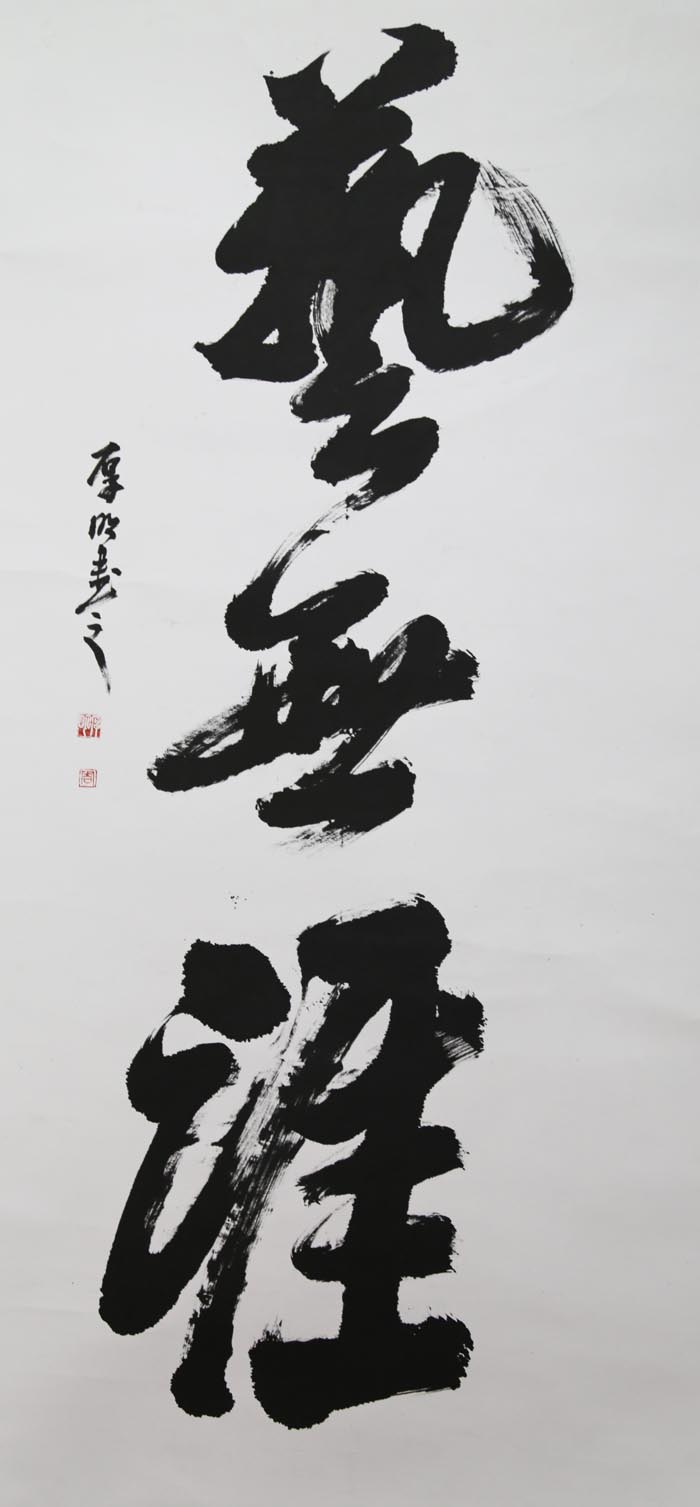 藝無涯
厚明書之